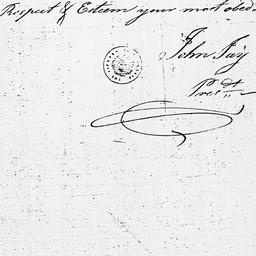 Respect & Esteem your most obed
John Jay
Presdt